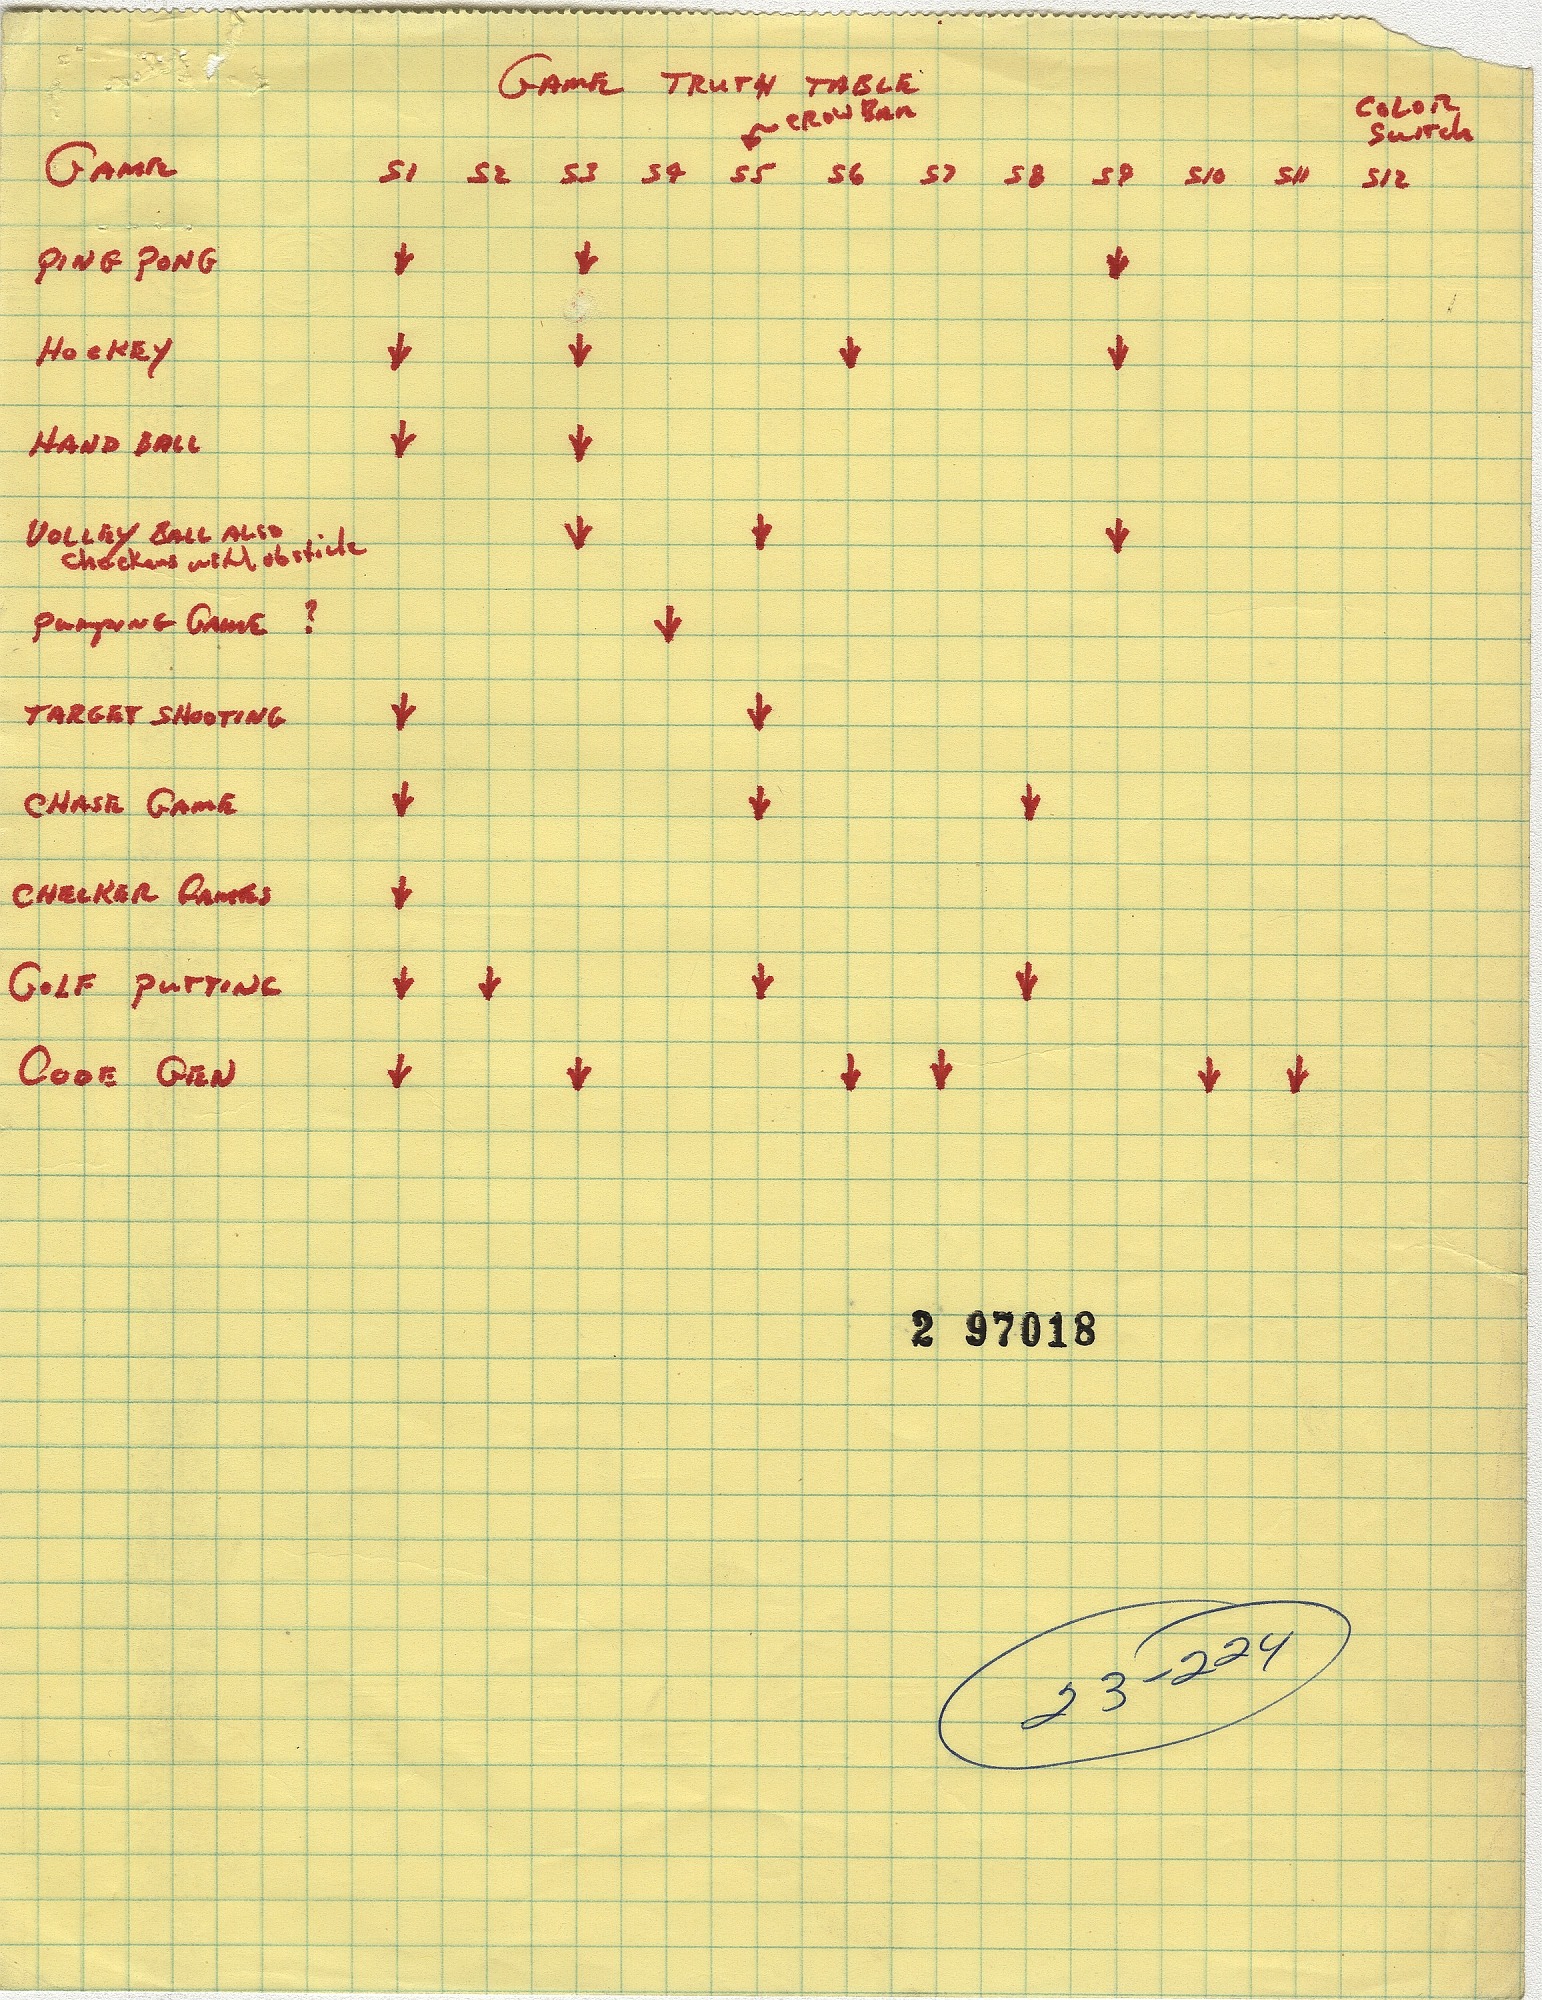 GAME TRUTH TABLE
CROWBAR
COLOR
Switch
GAME S1 S2 S3 S4 S5 S6 S7 S8 S9 S10 S11 S12
PING PONG ↓ ↓ ↓
HOCKEY ↓ ↓ ↓ ↓
HAND BALL ↓ ↓
VOLLEY BALL ALSO ↓ ↓ ↓
checkers with obsticle
PUMPING GAME ? ↓
TARGET SHOOTING ↓ ↓
CHASE GAME ↓ ↓ ↓
CHECKER GAMES ↓
GOLF PUTTING ↓ ↓ ↓ ↓
CODE GEN ↓ ↓ ↓ ↓ ↓ ↓
2 97018
23-224